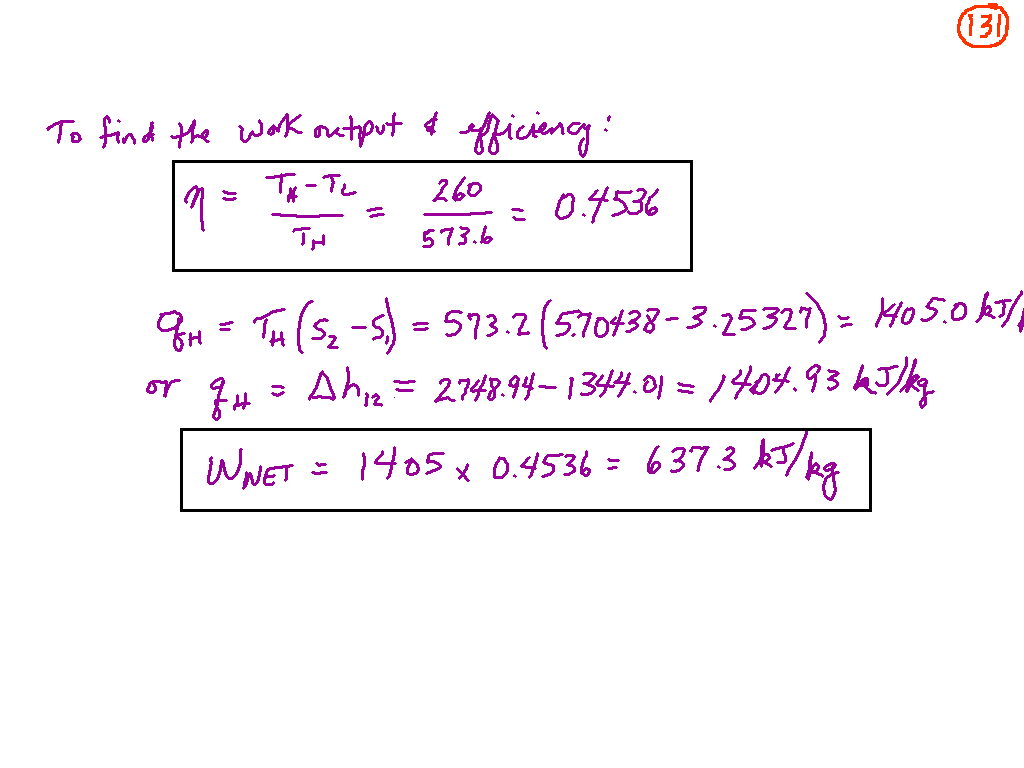 131
To find the work output & efficiency:
η = (T_H - T_L) / T_H = 260 / 573.6 = 0.4536
q_H = T_H (s_2 - s_1) = 573.2 (5.70438 - 3.25327) = 1405.0 kJ/
or q_H = Δh_12 = 2748.94 - 1344.01 = 1404.93 kJ/kg
W_NET = 1405 x 0.4536 = 637.3 kJ/kg